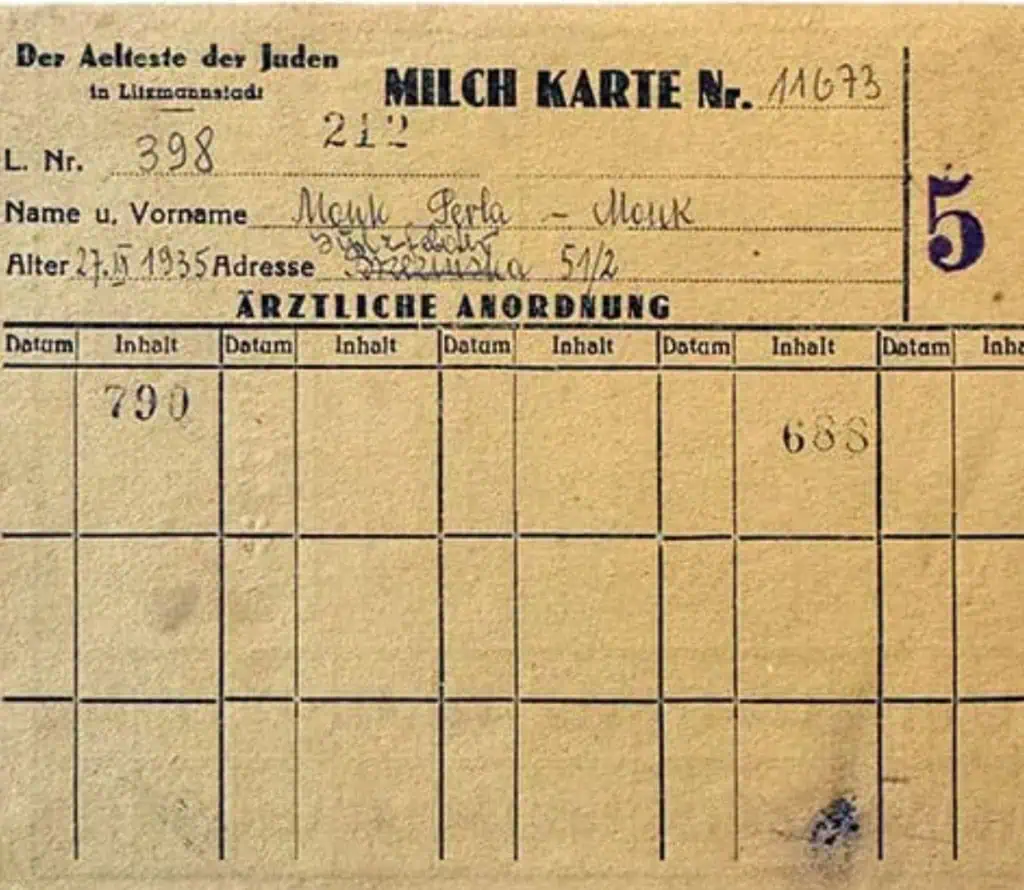 Der Aelteste der Juden
in Litzmannstadt
MILCH KARTE Nr. 11673
212
L. Nr. 398
5
Name u. Vorname Monk Perla - Monk
Alter 27. IX 1935 Adresse 51/2
ÄRZTLICHE ANORDNUNG
Datum Inhalt Datum Inhalt Datum Inhalt Datum Inhalt Datum Inha
790
688